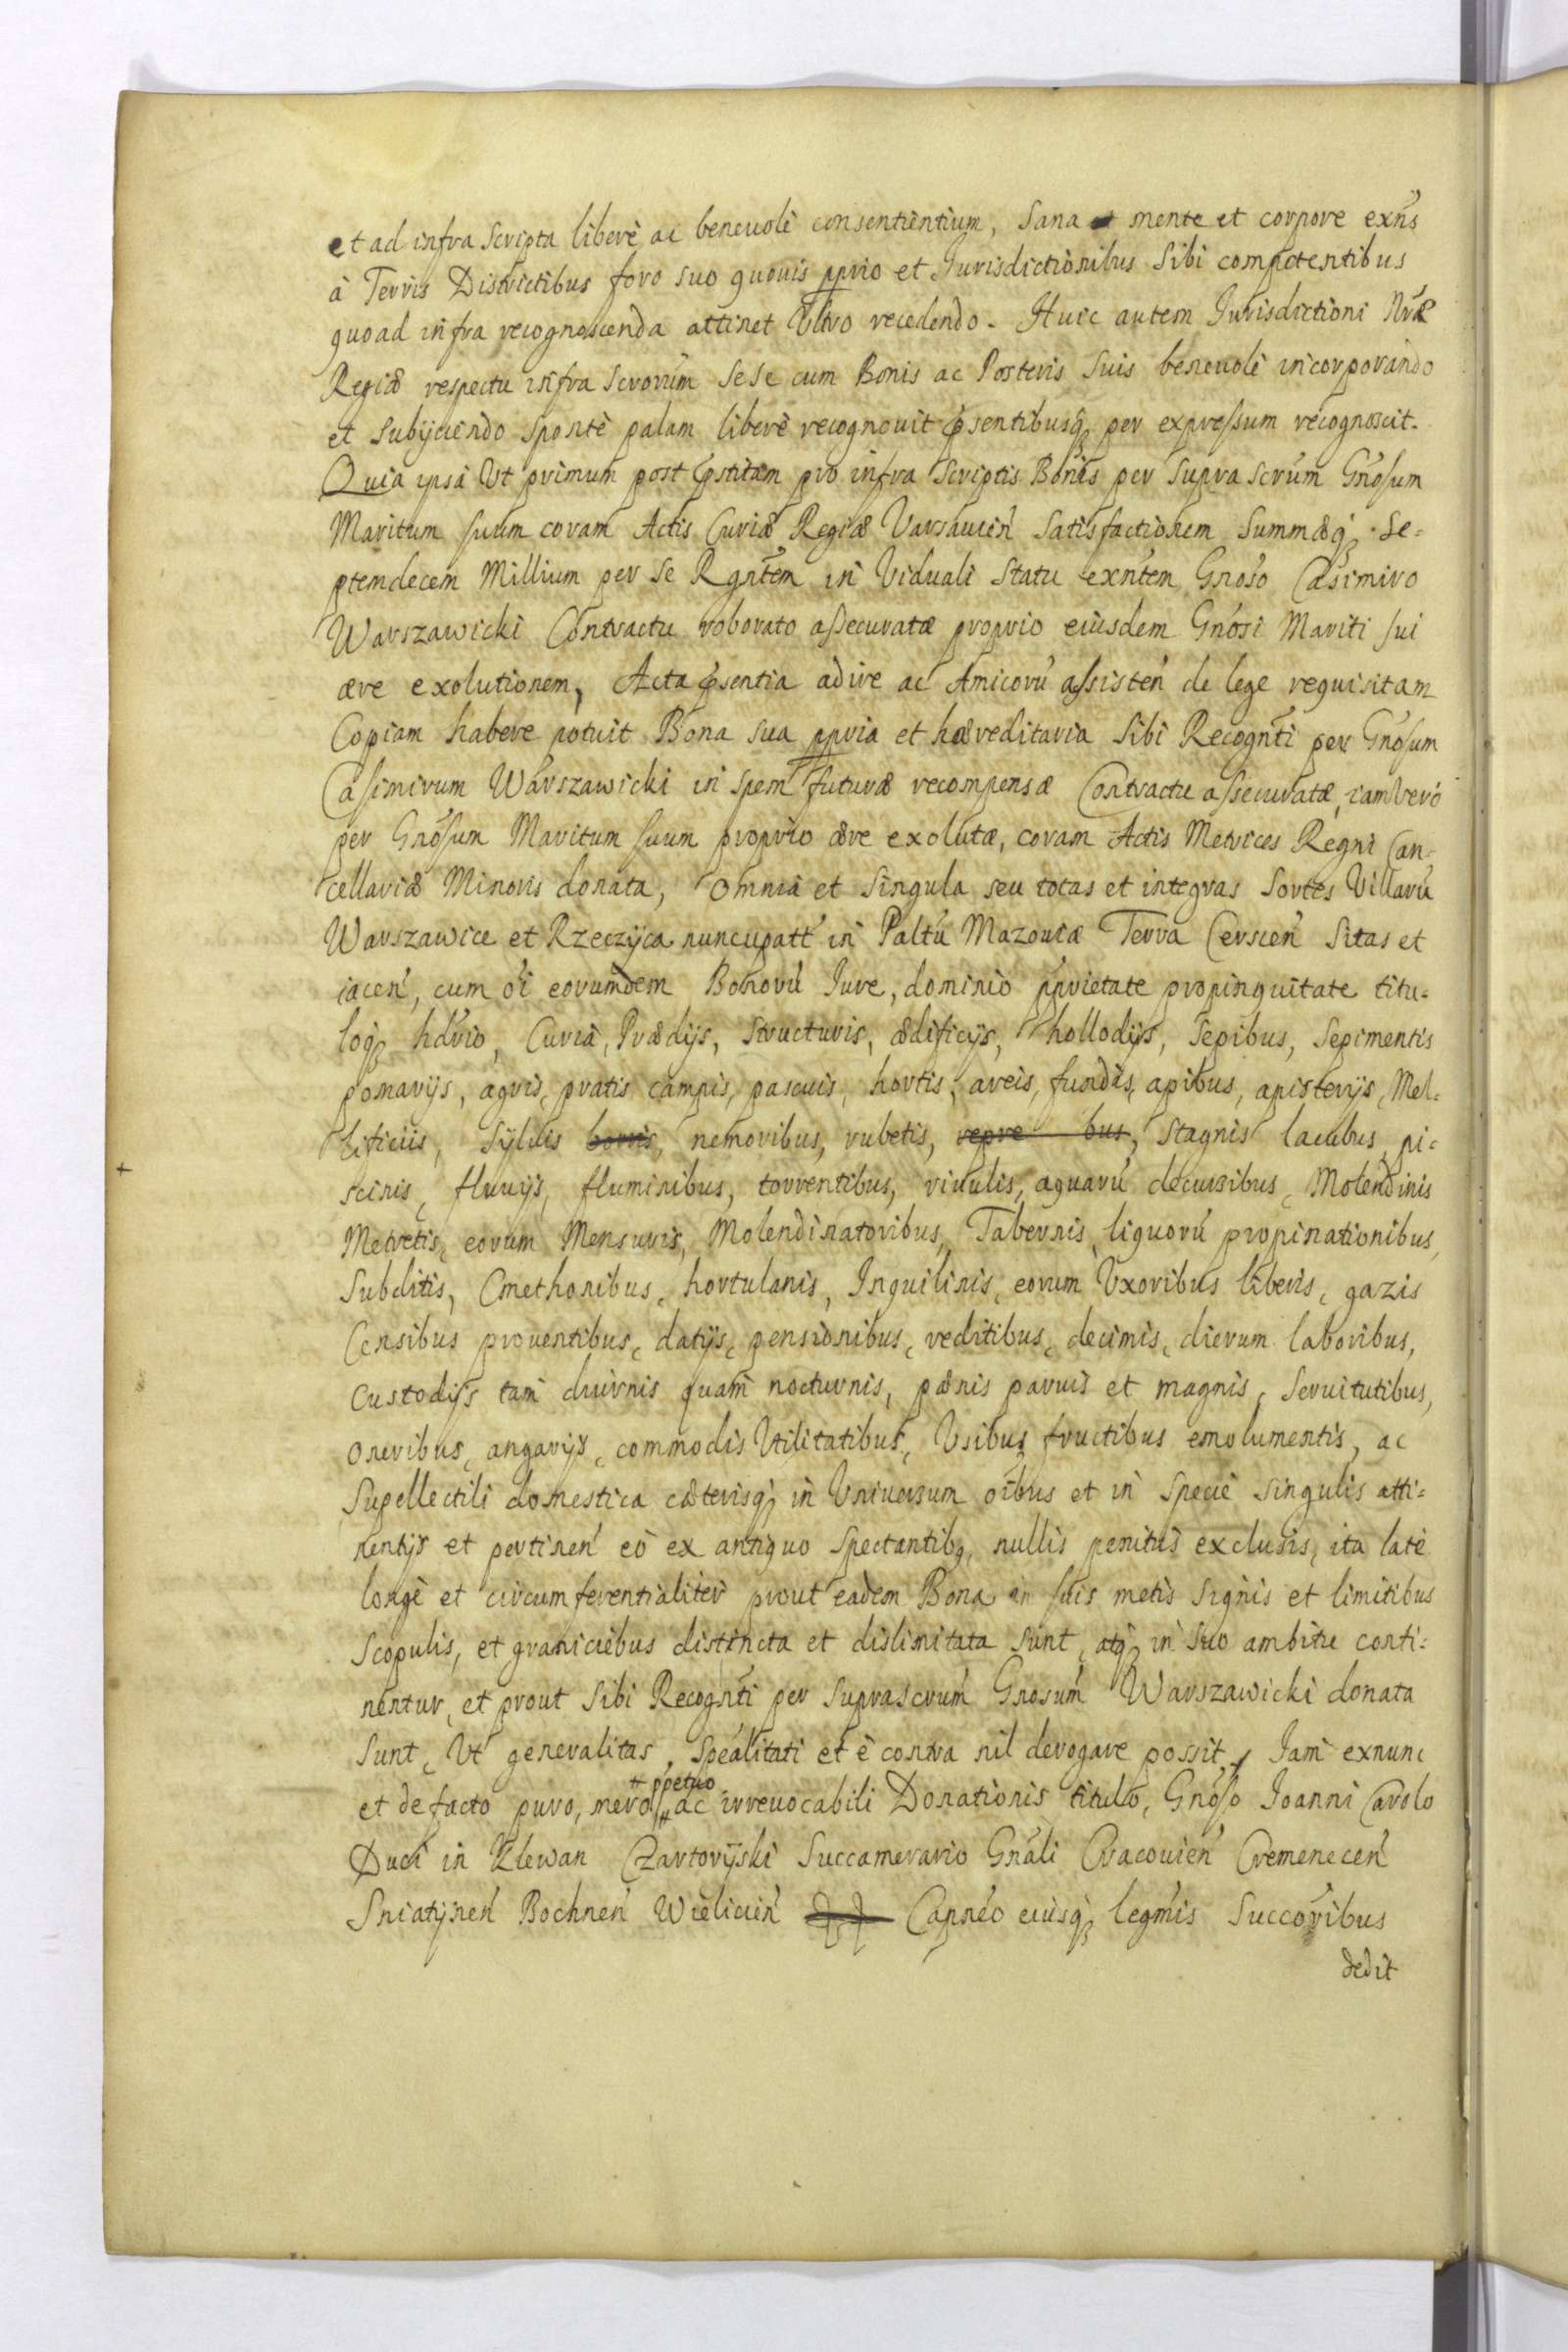 et ad infra scripta liberè ac beneuolè consentientium, Sana mente et corpore exñs
à Terris Districtibus foro suo quouis pprio et Jurisdictionibus Sibi competentibus
quoad infra recognoscenda attinet Ultro recedendo. Huic autem Jurisdictioni Nræ
Regiæ respectu infra scrorum sese cum Bonis ac Posteris Suis beneuolè incorporando
et Subijciendo spontè palam liberè recognouit pñsentibusq; per expressum recognoscit.
Quia ipsa Ut primum post pstitam pro infra scriptis Bonis per Supra scrum Gnosum
Maritum suum coram Actis Curiæ Regiæ Varsauien̄ Satisfactionem Summæq; Se=
ptemdecem Millium per se Rgntem in Viduali Statu exntem Gnoso Casimiro
Warszawicki Contractu roborato assecuratæ proprio eiusdem Gnosi Mariti sui
ære exolutionem, Acta psentia adire ac Amicorū assisten̄ de lege requisitam
Copiam habere potuit Bona sua ppria et hæreditaria Sibi Recognti per Gnosum
Casimirum Warszawicki in spem futuræ recompensæ Contractu assecuratæ, iam Verò
per Gnosum Maritum suum proprio ære exolutæ, coram Actis Metrices Regni Can=
cellariæ Minoris donata, Omnia et Singula seu totas et integras Sortes Villarū
Warszawice et Rzeczyca nuncupatt in Paltū Mazouiæ Terra Cerscen̄ Sitas et
iacen̄, cum oi eorumdem Bonorū Jure, dominio pprietate propinquitate titu=
loq; hdrio, Curia, Prædijs, structuris, ædificijs, hollodijs, Sepibus, Sepimentis
pomarijs, agris, pratis campis, pascuis, hortis, areis, fundis, apibus, apisterijs, Mel=
lificiis, Syluis borris, nemoribus, rubetis, repre bus, Stagnis lacubus pi=
scinis, fluuijs, fluminibus, torrentibus, riuulis, aquarū decursibus, Molendinis
Metretis, eorum Mensuris, Molendinatoribus, Tabernis, liquorū propinationibus,
Subditis, Cmethonibus, hortulanis, Inquilinis, eorum Uxoribus liberis, gazis
Censibus prouentibus, datijs, pensionibus, reditibus, decimis, dierum laboribus,
Custodijs tam diurnis quam nocturnis, pœnis paruis et magnis, Seruitutibus,
Oneribus, angarijs, commodis Utilitatibus, Usibus fructibus emolumentis, ac
Supellectili domestica cæterisq; in Uniuersum oibus et in Specie singulis atti=
nentijs et pertinen̄ eò ex antiquo Spectantibq, nullis penitus exclusis, ita latè
longè et circumferentialiter prout eadem Bona in suis metis Signis et limitibus
Scopulis, et graniciebus distincta et dislimitata sunt, atq; in Suo ambitu conti=
nentur, et prout Sibi Recognti per suprascrum Gnosum Warszawicki donata
Sunt, Ut generalitas, Spealitati et è contra nil derogare possit, Jam exnunc
et de facto puro, mero + ppetuo ac irreuocabili Donationis titulo, Gnoso Joanni Carolo
Duci in Klewan Czartoryski Succamerario Gnali Cracouien̄ Cremenecen̄
Sniatynen̄ Bochnen̄ Wielicien̄ Capneo eiusq; legmis Succoribus
dedit
+